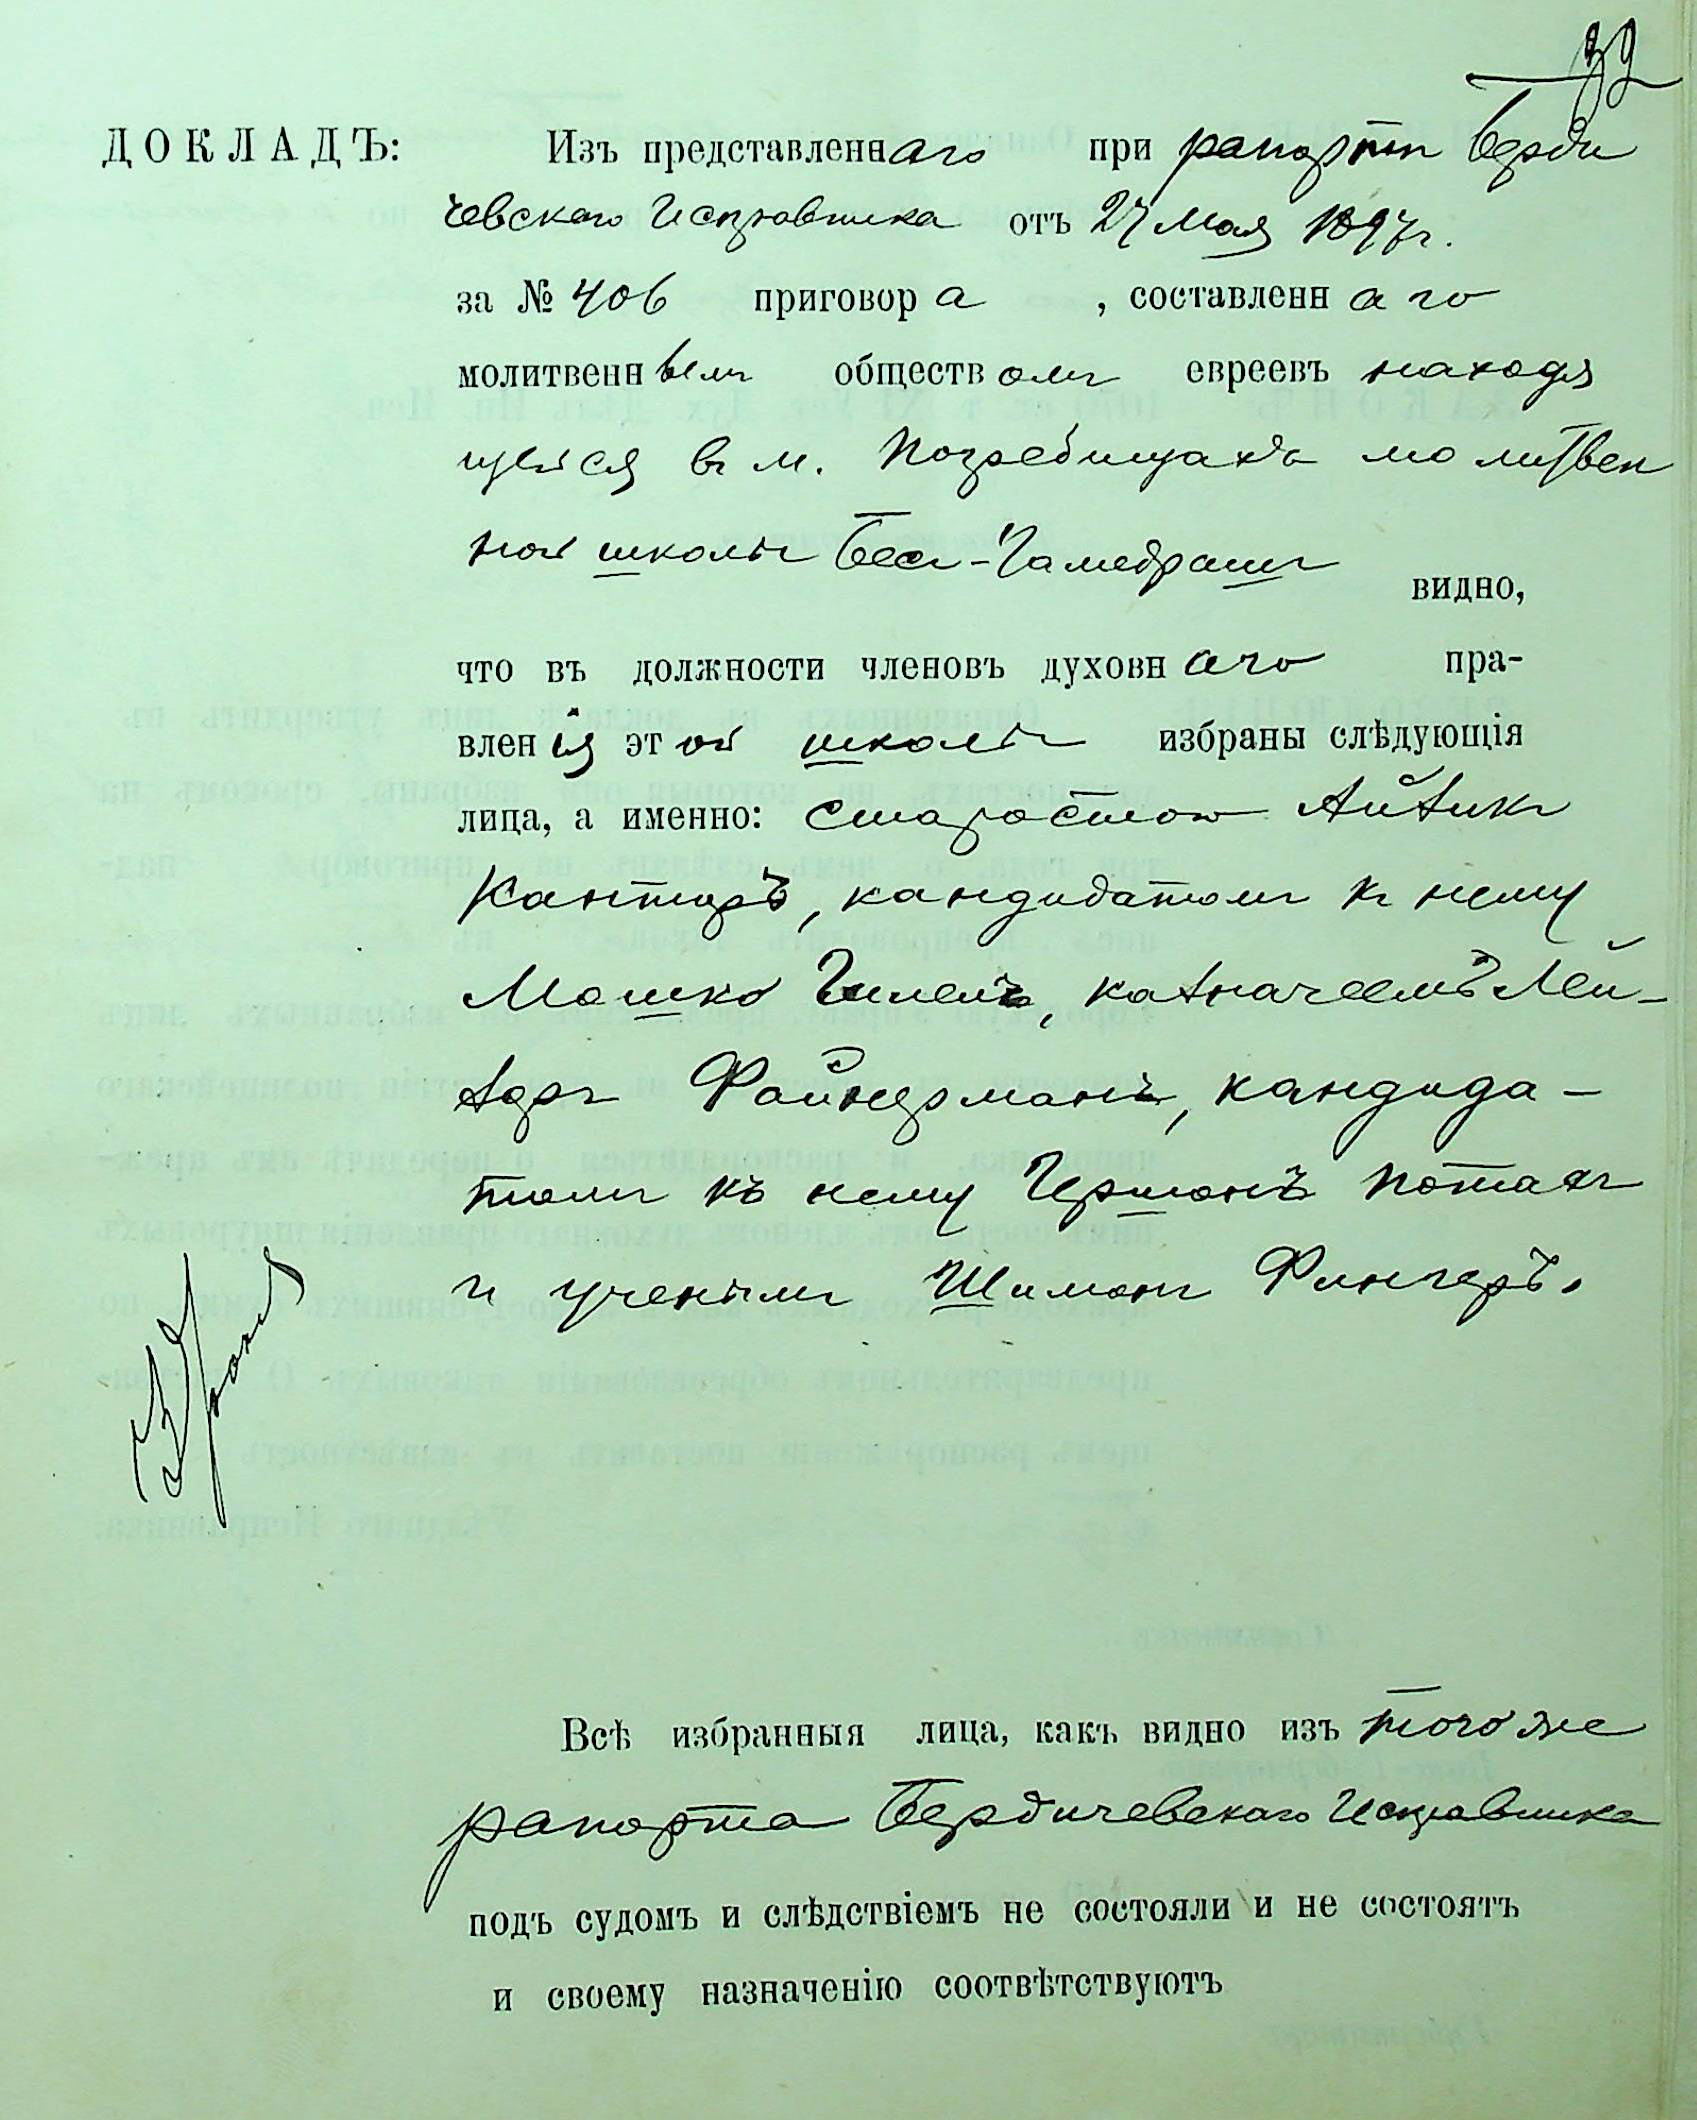 39
ДОКЛАДЪ: Изъ представленнаго при рапортѣ Берди
чевскаго Исправника отъ 27 Мая 1897 г.
за № 406 приговора, составленнаго
молитвеннымъ обществомъ евреевъ находя
щейся въ м. Погребищахъ молитвен
ной школы Бесъ-Гамедрашъ видно,
что въ должности членовъ духовнаго пра-
вленія этой школы избраны слѣдующія
лица, а именно: старостою Айзикъ
Канторъ, кандидатомъ къ нему
Мошко Гилелъ, казначеемъ Лей-
зеръ Файнерманъ, кандида-
томъ къ нему Гершонъ Поташъ
и ученымъ Шимонъ Фингеръ.
Всѣ избранныя лица, какъ видно изъ того же
рапорта Бердичевскаго Исправника
подъ судомъ и слѣдствіемъ не состояли и не состоятъ
и своему назначенію соотвѣтствуютъ